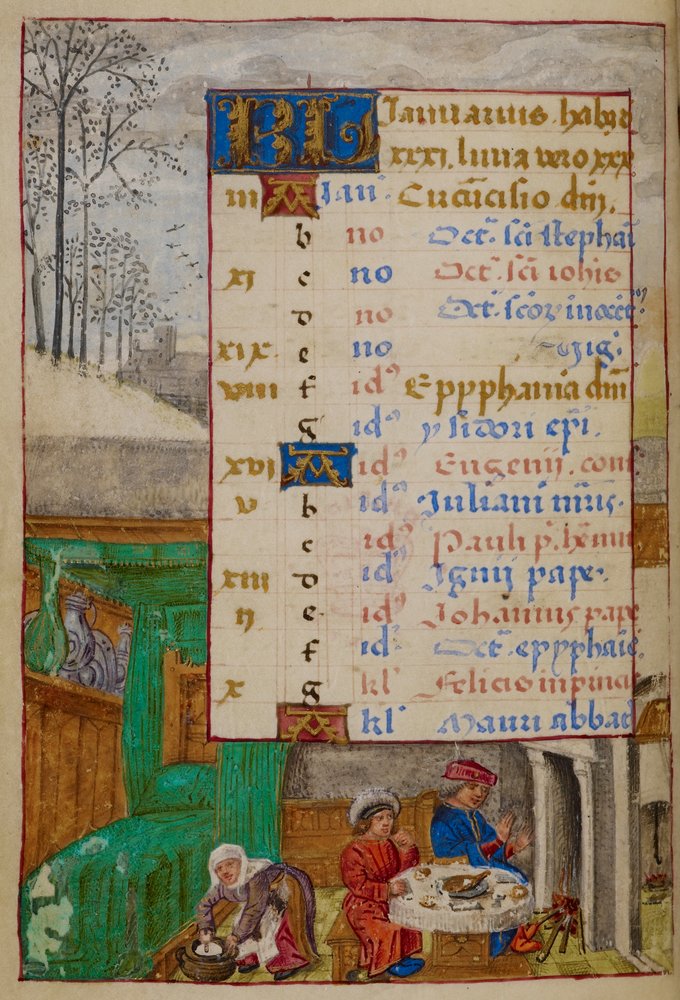 KL Januarius habet
xxxi. luna vero xxx
iii A Jan⁹ Circũcisio dñi.
b no Oct̃. sc̃i stephãi
xi c no Oct̃. sc̃i iohis
d no Oct̃. sc̃oꝝ innocẽt
xix e no vigᵃ.
viii f id⁹ Epyphania dñi
g id⁹ ysidori ep̃i.
xvi A id⁹ Eugenij. conf
v b id⁹ Juliani mr̃is.
c id⁹ Pauli p̃. hẽmit
xiii d id⁹ Iginij pape.
ii e id⁹ Johannis pape
f id⁹ Oct̃. epyphaĩe.
x g kl⁹ Felicis in pincis
A kl⁹ Mauri abbat